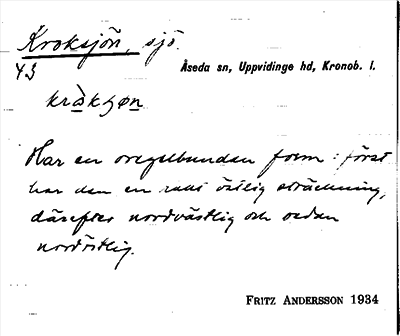 Kroksjön, sjö.
43
Åseda sn, Uppvidinge hd, Kronob. l.
Har en oregelbunden form: först
har den en rakt östlig sträckning,
därefter nordvästlig och sedan
nordöstlig.
FRITZ ANDERSSON 1934